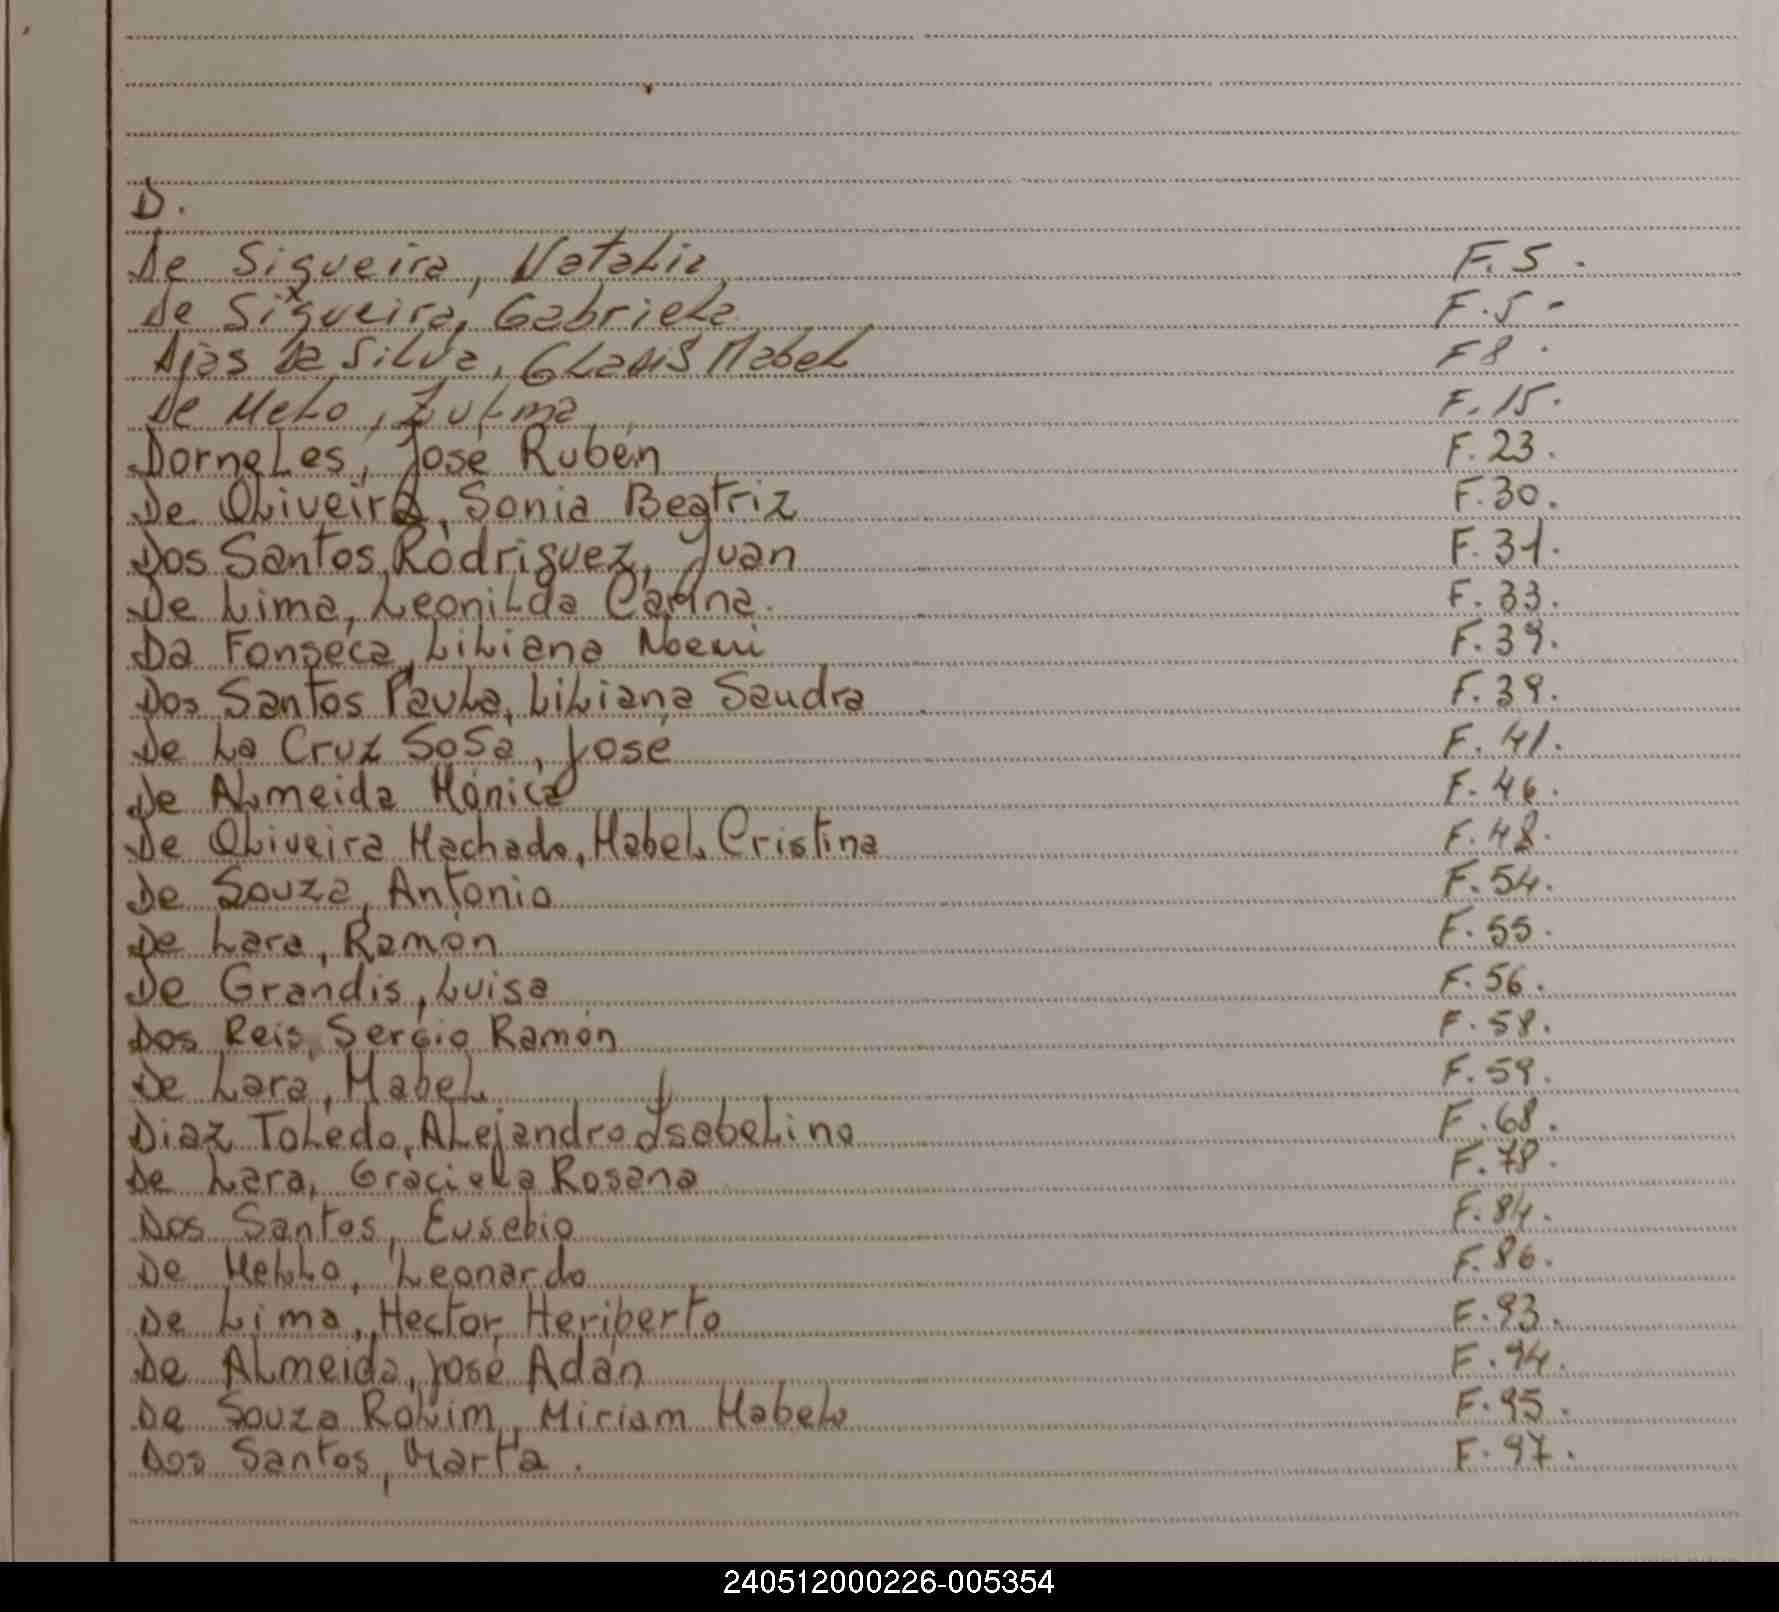 D.
De Siqueira, Natalia F. 5.
De Siqueira, Gabriela F. 5-
Dias Da Silva, Gladis Mabel F 8.
De Melo, Zulma F. 15.
Dorneles, José Rubén F. 23.
De Oliveira, Sonia Beatriz F. 30.
Dos Santos Rodriguez, Juan F. 31.
De Lima, Leonilda Carina. F. 33.
Da Fonseca, Liliana Noemi F. 39.
Dos Santos Paula, Liliana Sandra F. 39.
De La Cruz Sosa, José F. 41.
De Almeida Mónica F. 46.
De Oliveira Machado, Mabel Cristina F. 48.
De Souza, Antonio F. 54.
De Lara, Ramón F. 55.
De Grandis, Luisa F. 56.
Dos Reis, Sergio Ramón F. 58.
De Lara, Mabel F. 59.
Diaz Toledo, Alejandro Isabelino F. 68.
De Lara, Graciela Rosana F. 78.
Dos Santos, Eusebio F. 84.
De Mello, Leonardo F. 86.
De Lima, Hector Heriberto F. 93.
De Almeida, José Adán F. 94.
De Souza Rolim, Miriam Mabel F. 95.
Dos Santos, Marta. F. 97.
240512000226-005354